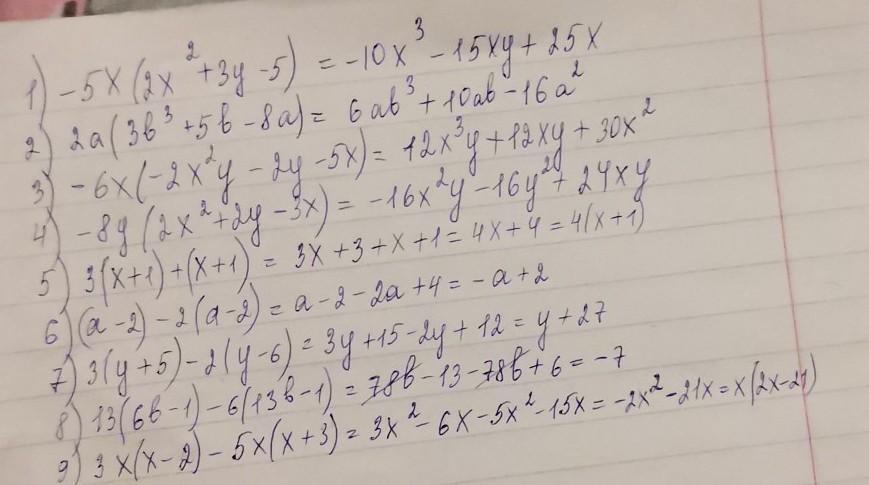 1) -5x(2x² + 3y - 5) = -10x³ - 15xy + 25x
2) 2a(3b³ + 5b - 8a) = 6ab³ + 10ab - 16a²
3) -6x(-2x²y - 2y - 5x) = 12x³y + 12xy + 30x²
4) -8y(2x² + 2y - 3x) = -16x²y - 16y² + 24xy
5) 3(x+1) + (x+1) = 3x + 3 + x + 1 = 4x + 4 = 4(x+1)
6) (a-2) - 2(a-2) = a - 2 - 2a + 4 = -a + 2
7) 3(y+5) - 2(y-6) = 3y + 15 - 2y + 12 = y + 27
8) 13(6b-1) - 6(13b-1) = 78b - 13 - 78b + 6 = -7
9) 3x(x-2) - 5x(x+3) = 3x² - 6x - 5x² - 15x = -2x² - 21x = x(2x-21)